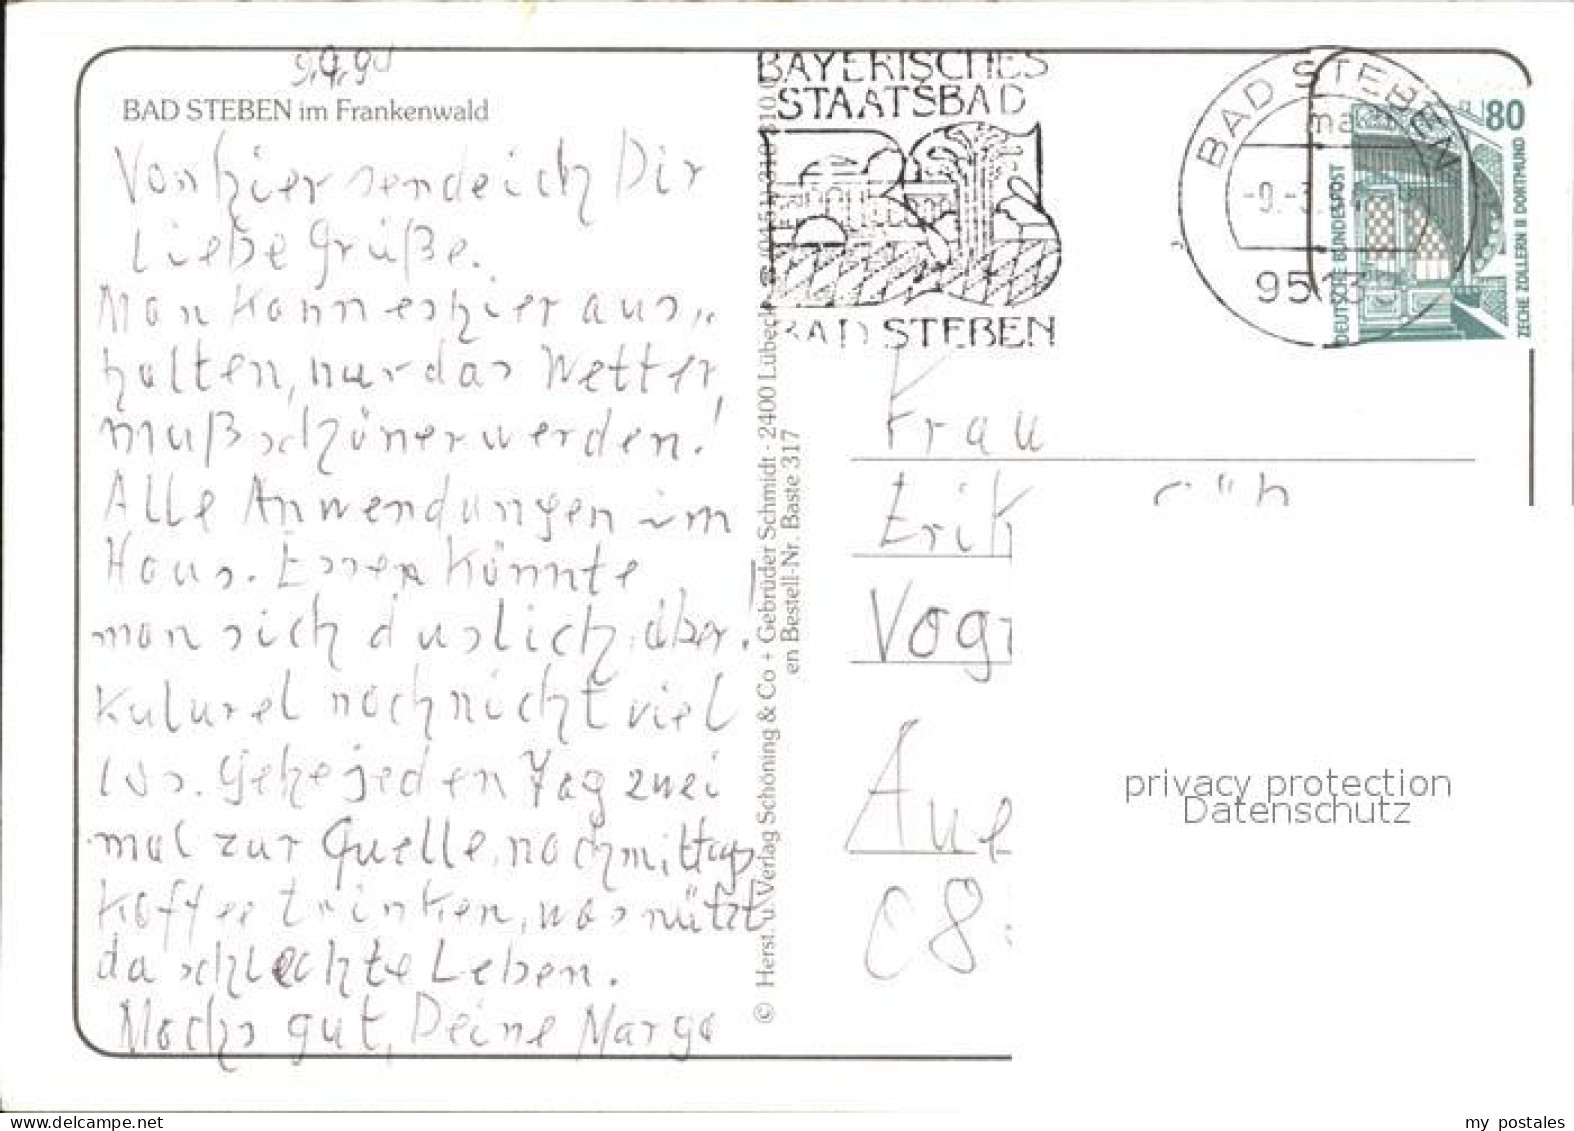 BAD STEBEN im Frankenwald
Von hier sende ich Dir
liebe Grüße.
Man kann es hier aus„
halten, nur das Wetter
muß schöner werden!
Alle Anwendungen im
Haus. Essen könnte
man sich duslich, aber.
Kulurel noch nicht viel
los. Gehe jeden Tag zwei
mal zur Quelle, nachmittags
Kaffee trinken, was nützt
da schlechte Leben.
Machs gut, Deine Marga
© Herst. u. Verlag Schöning & Co + Gebrüder Schmidt · 2400 Lübeck
en Bestell-Nr. Baste 317
BAYERISCHES
STAATSBAD
BAD STEBEN
BAD STEBEN
9513
80
DEUTSCHE BUNDESPOST
ZECHE ZOLLERN II DORTMUND
Frau
Erik
Vogt
Aue
08
privacy protection
Datenschutz
my postales